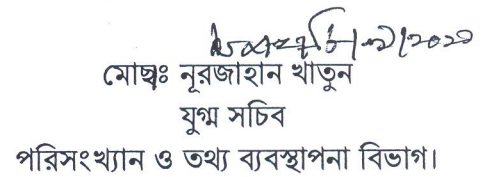 মোছাঃ নূরজাহান খাতুন
যুগ্ম সচিব
পরিসংখ্যান ও তথ্য ব্যবস্থাপনা বিভাগ।